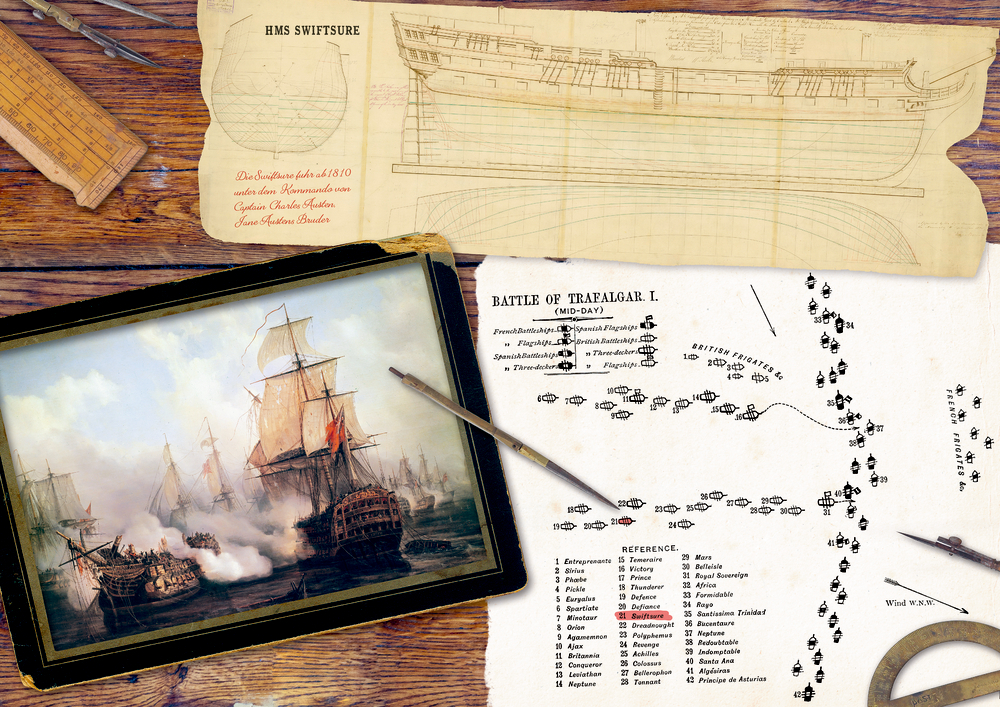 HMS SWIFTSURE
Die Swiftsure fuhr ab 1810
unter dem Kommando von
Captain Charles Austen,
Jane Austens Bruder
BATTLE OF TRAFALGAR. I.
(MID-DAY)
French Battleships
Spanish Flagships
" Flagships
British Battleships
Spanish Battleships
" Three-deckers
" Three-deckers
" Flagships
BRITISH FRIGATES &c
1
2
3
4
5
6
7
8
9
10
11
12
13
14
15
16
33
34
35
36
37
38
FRENCH FRIGATES &c.
39
40
41
42
18
19
20
21
22
23
24
25
26
27
28
29
30
31
Wind W.N.W.
REFERENCE.
1 Entreprenante
2 Sirius
3 Phœbe
4 Pickle
5 Euryalus
6 Spartiate
7 Minotaur
8 Orion
9 Agamemnon
10 Ajax
11 Britannia
12 Conqueror
13 Leviathan
14 Neptune
15 Temeraire
16 Victory
17 Prince
18 Thunderer
19 Defence
20 Defiance
21 Swiftsure
22 Dreadnought
23 Polyphemus
24 Revenge
25 Achilles
26 Colossus
27 Bellerophon
28 Tonnant
29 Mars
30 Belleisle
31 Royal Sovereign
32 Africa
33 Formidable
34 Rayo
35 Santissima Trinidad
36 Bucentaure
37 Neptune
38 Redoubtable
39 Indomptable
40 Santa Ana
41 Algésiras
42 Principe de Asturias